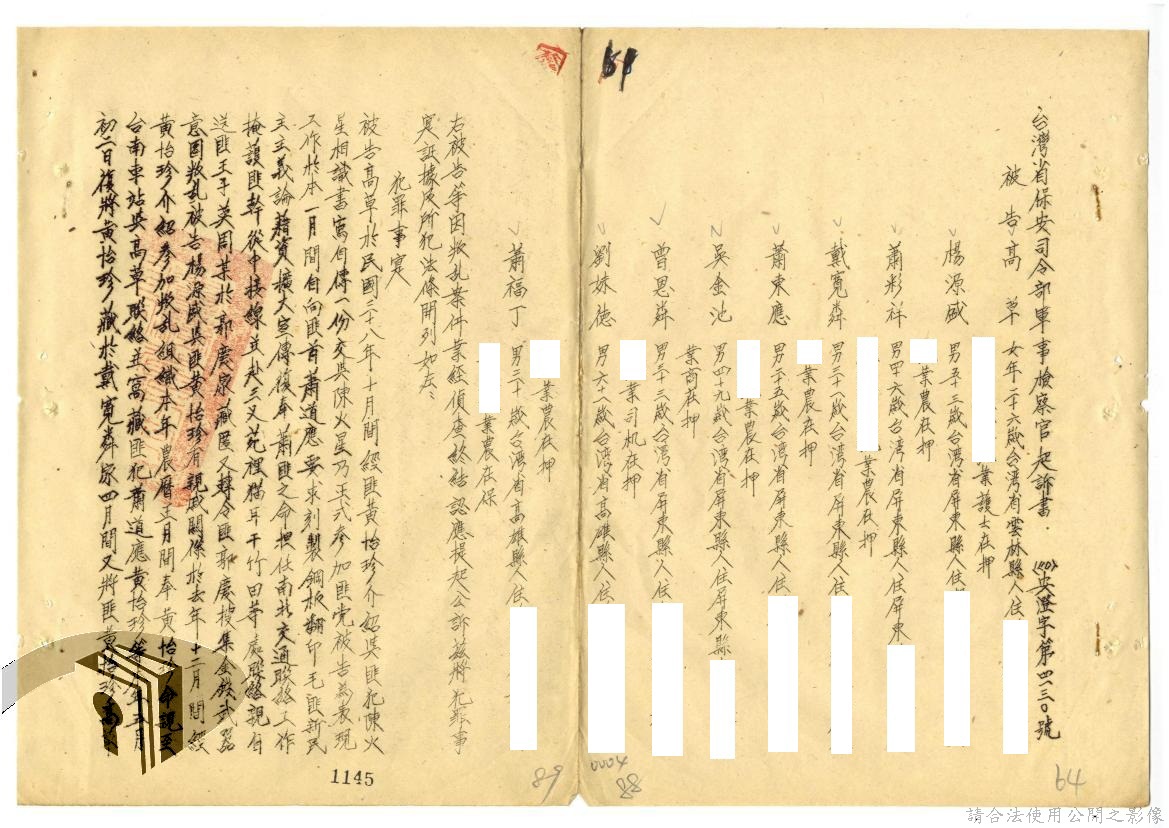 台灣省保安司令部軍事檢察官起訴書
(40)安澄字第四三〇號
被告 高草 女年二十六歲台灣省雲林縣人住
業護士在押
楊源盛 男五十三歲台灣省屏東縣人住
業農在押
蕭彩祥 男 六歲台灣省屏東縣人住屏東
業農在押
戴寬森 男三十一歲台灣省屏東縣人住
業農在押
蕭東應 男二十五歲台灣省屏東縣人住
業農在押
吳金池 男四十九歲台灣省屏東縣人住屏東縣
業商在押
曾恩 男三十三歲台灣省屏東縣人住
業司机在押
劉妹德 男六十一歲台灣省高雄縣人住
業農在押
蕭福丁 男三十歲台灣省高雄縣人住
業農在保
右被告等因叛乱案件業經偵查終結認應提起公訴茲將犯罪事
實証據及所犯法條開列如左
犯罪事實
被告高草於民國三十八年十月間經匪黃怡珍介紹與匪犯陳火
星相識書寫自傳一份交與陳火星乃正式參加匪党被告為表現
工作於本 一月間自向匪首蕭道應要求刻製鋼板翻印毛匪新民
主主義論藉資擴大宣傳復奉蕭匪之命担任南北交通聯絡工作
掩護匪幹從中接線並赴三义苑裡貓耳干竹田等處聯絡親自
送匪王子英周某於郭慶泉藏匿又轉令匪郭慶 集金錢武器
意圖叛乱被告楊源盛與匪黃怡珍有親戚關係於去年十二月間經
黃怡珍介紹參加叛乱組織本年農曆三月間奉黃怡珍命親至
台南車站與高草聯絡並窩藏匪犯蕭道應黃怡珍等 年五月
初二日復將黃怡珍藏於戴寬森家四月間又將匪黃怡珍高草
1145
89
0004
88
64
請合法使用公開之影像